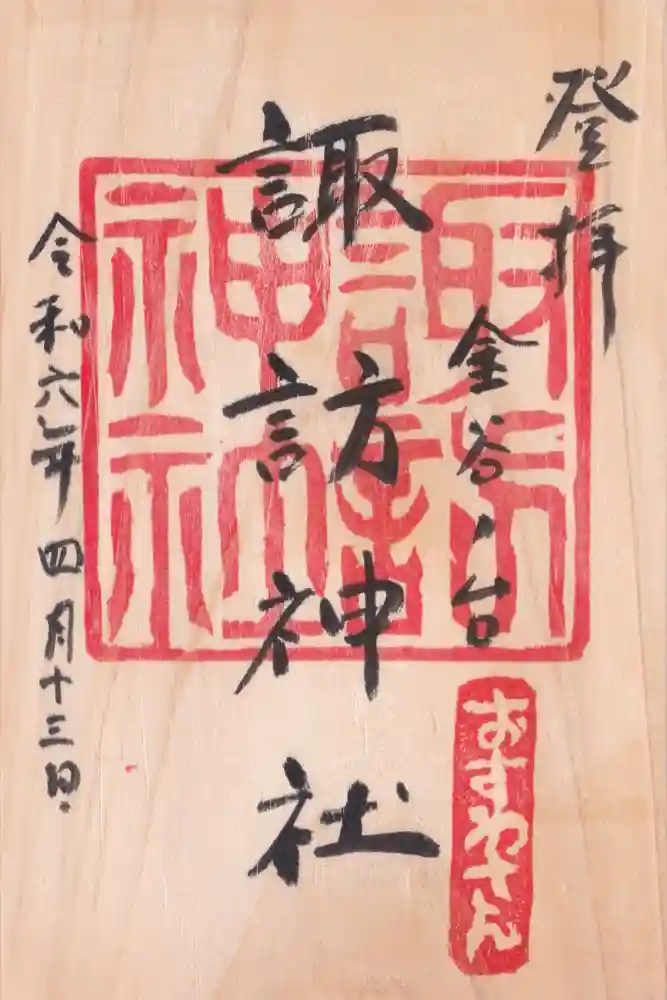 登拝
金谷ノ台
諏訪神社
令和六年四月十三日
諏訪神社
おすわさん